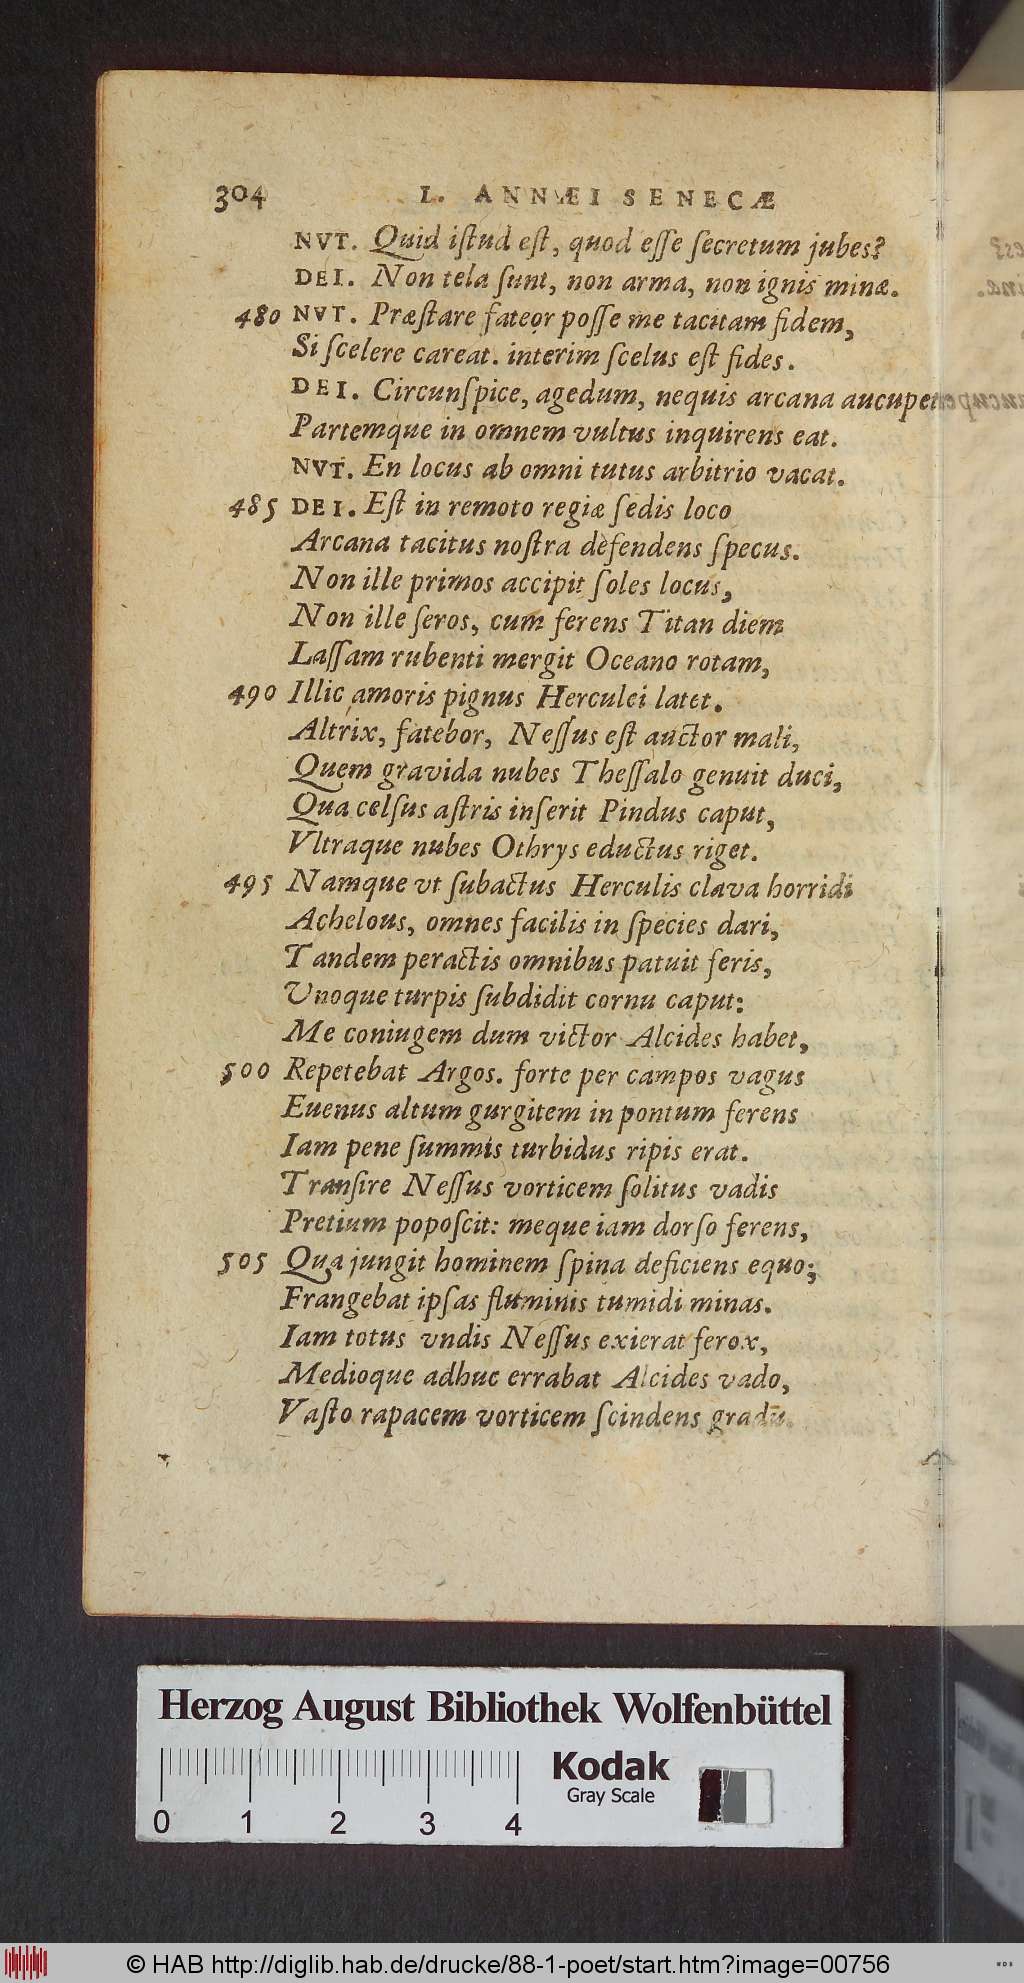 304 L. ANNÆI SENECÆ
NVT. Quid iſtud eſt, quod eſſe ſecretum jubes?
DEI. Non tela ſunt, non arma, non ignis minæ.
480 NVT. Præſtare fateor poſſe me tacitam fidem,
Si ſcelere careat. interim ſcelus eſt fides.
DEI. Circunſpice, agedum, nequis arcana aucupet
Partemque in omnem vultus inquirens eat.
NVT. En locus ab omni tutus arbitrio vacat.
485 DEI. Eſt in remoto regiæ ſedis loco
Arcana tacitus noſtra defendens ſpecus.
Non ille primos accipit ſoles locus,
Non ille ſeros, cum ferens Titan diem
Laſſam rubenti mergit Oceano rotam,
490 Illic amoris pignus Herculei latet.
Altrix, fatebor, Neſſus eſt auctor mali,
Quem gravida nubes Theſſalo genuit duci,
Qua celſus aſtris inſerit Pindus caput,
Vltraque nubes Othrys eductus riget.
495 Namque vt ſubactus Herculis clava horridi
Achelous, omnes facilis in ſpecies dari,
Tandem peractis omnibus patuit feris,
Unoque turpis ſubdidit cornu caput:
Me coniugem dum victor Alcides habet,
500 Repetebat Argos. forte per campos vagus
Euenus altum gurgitem in pontum ferens
Iam pene ſummis turbidus ripis erat.
Tranſire Neſſus vorticem ſolitus vadis
Pretium popoſcit: meque iam dorſo ferens,
505 Qua jungit hominem ſpina deficiens equo;
Frangebat ipſas fluminis tumidi minas.
Iam totus vndis Neſſus exierat ferox,
Medioque adhuc errabat Alcides vado,
Vaſto rapacem vorticem ſcindens gradu.
Herzog August Bibliothek Wolfenbüttel
Kodak
Gray Scale
0 1 2 3 4
© HAB http://diglib.hab.de/drucke/88-1-poet/start.htm?image=00756